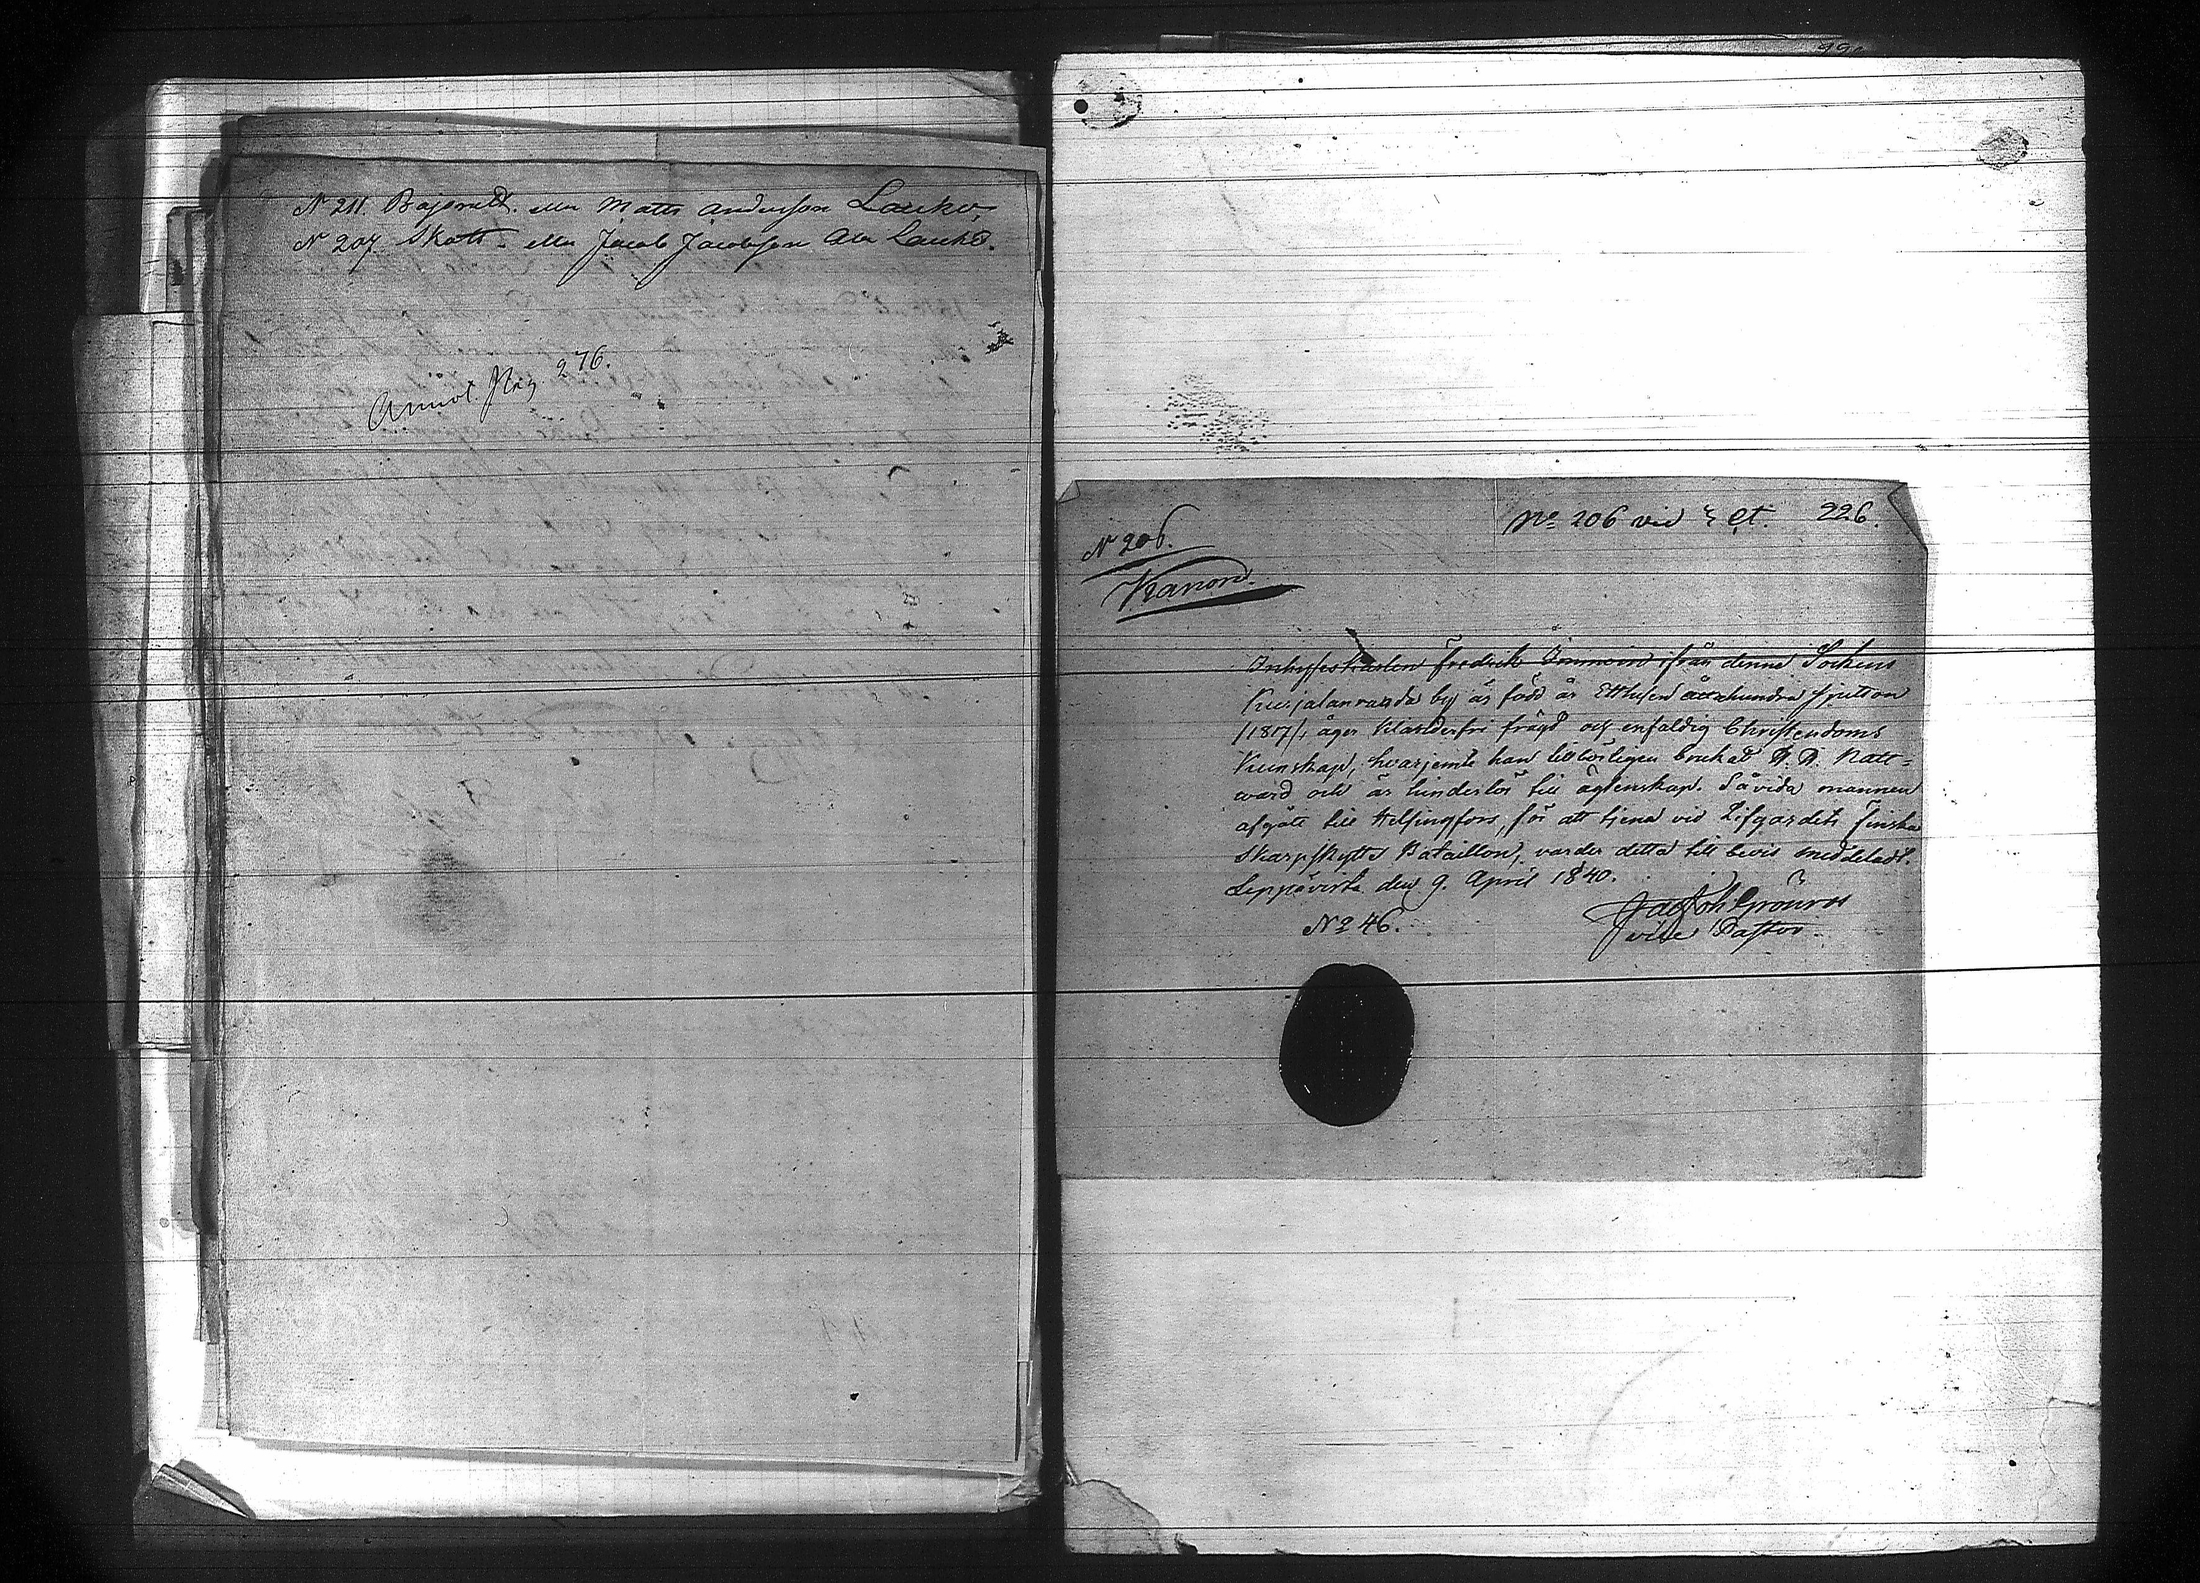 N 211. Bajonett. eller Matts Andersson Laucko,
N 207. Skott - eller Jacob Jacobsson Ala Lauko.
Annot. Pag 276.
No 206 vid 3 Ct. 226.
N 206.
Kanon.
Inhyseskarlen Fredrik Immoin ifrån denna Sockens
Kurjalanranda by är född år Ett tusend åttahundra sjutton
/1817/, äger klanderfri frägd och enfaldig Christendoms
Kunskap, hvarjemte han tillbörligen brukat H. H. Natt=
ward och är hinderlös till ägtenskap. Såvida mannen
afgått till Helsingfors, för att tjena vid Lifgardets Finska
Skarpskytte Bataillon, varder detta till bevis meddeladt.
Leppävirta den 9. April 1840.
No 46. Grönroos
vice Pastor.